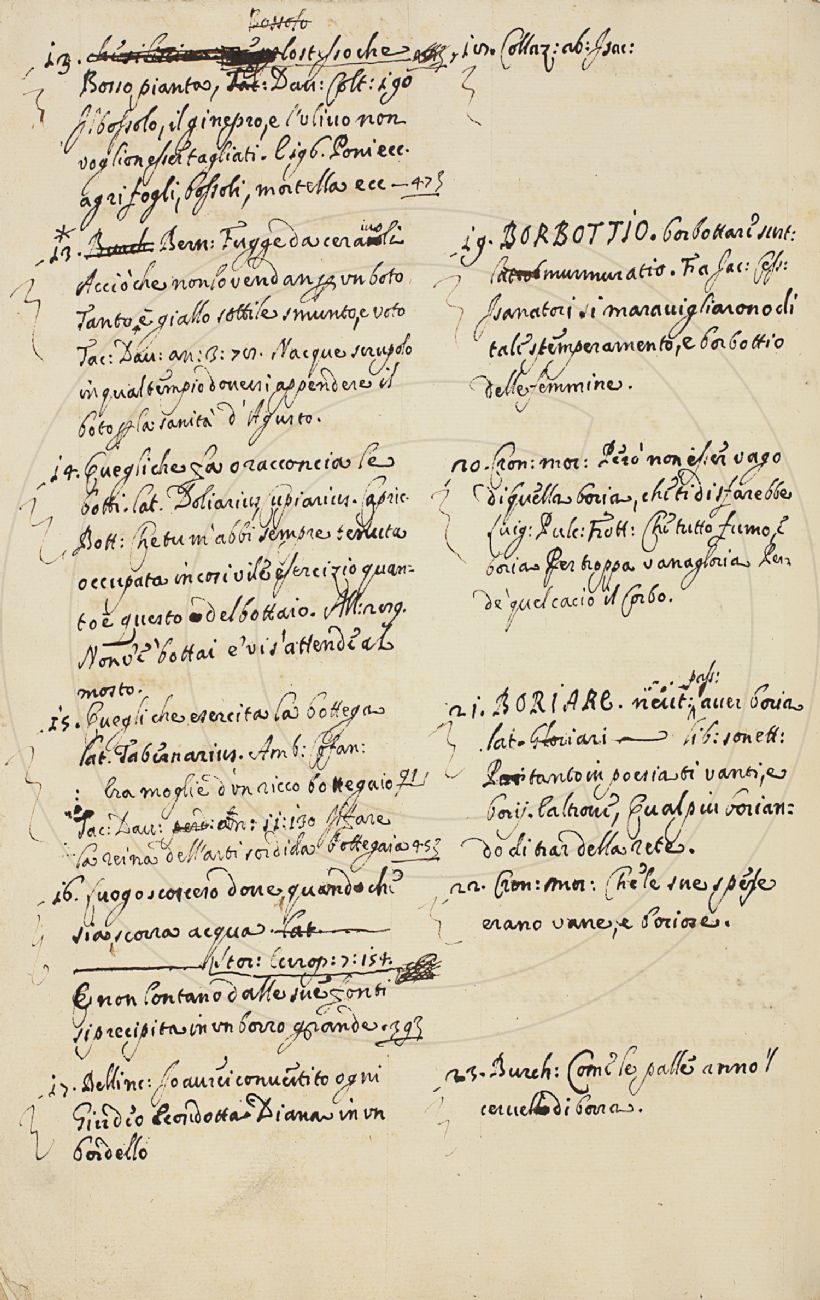 Bossolo
13. lo stesso che
Bosso, pianta, Tac: Dav: Colt: 190
Il bossolo, il ginepro, e l'ulivo non
voglion esser tagliati. E 196. Poni ecc.
agrifogli, bossoli, mortella ecc — 473
* 13. Burch. Bern: Fugge da ceraiuoli
Acciò che non lo vendan p un boto
Tanto è giallo sottile smunto, e voto
Tac: Dav: an: 3: 78. Nacque scrupolo
in qual tempio dovevsi appendere il
boto p la sanità d'Agusto.
14. Quegli che fa o racconcia le
botti. lat. Doliarius Cupiarius. Capric:
Bott: Che tu m'abbi sempre tenuta
occupata in così vile esercizio quan=
to è questo del bottaio. All: 219.
Non v'è bottai e' vi s'attende al
mosto.
15. Quegli che esercita la bottega
lat. Tabernarius. Amb: Cofan:
Era moglie d'un ricco bottegaio 91
Tac: Dav: an: 11: 130 p fare
la reina dell'arti sordida bottegaia 453
16. Luogo scosceso dove, quando che
sia, scorra acqua lat.
Stor: Europ: 7: 154.
E non lontano dalle sue fonti
si precipita in un borro grande. 393
17. Bellinc: Io avrei convertito ogni
Giudeo E condotta Diana in un
bordello
18. Collaz: ab: Isac:
19. BORBOTTIO. borbottare sust:
lat. murmuratio. Tac: Cess:
I sanatori si maravigliarono di
tale stemperamento, e borbottio
delle femmine.
20. Cron: mor: Però non esser vago
di quella boria, che ti disfarebbe
Luig: Pulc: Frott: Che tutto fumo, è
boria Per troppa vanagloria Per=
dè quel cacio il Corbo.
pass:
21. BORIARE. neut: aver boria
lat. Gloriari — lib: sonett:
tanto in poesia ti vanti, e
borij. E altrove, Qual più borian=
do di trar della rete.
22. Cron: mor: Che le sue spese
erano vane, e boriose.
23. Burch: Come le palle anno 'l
cervello di borra.